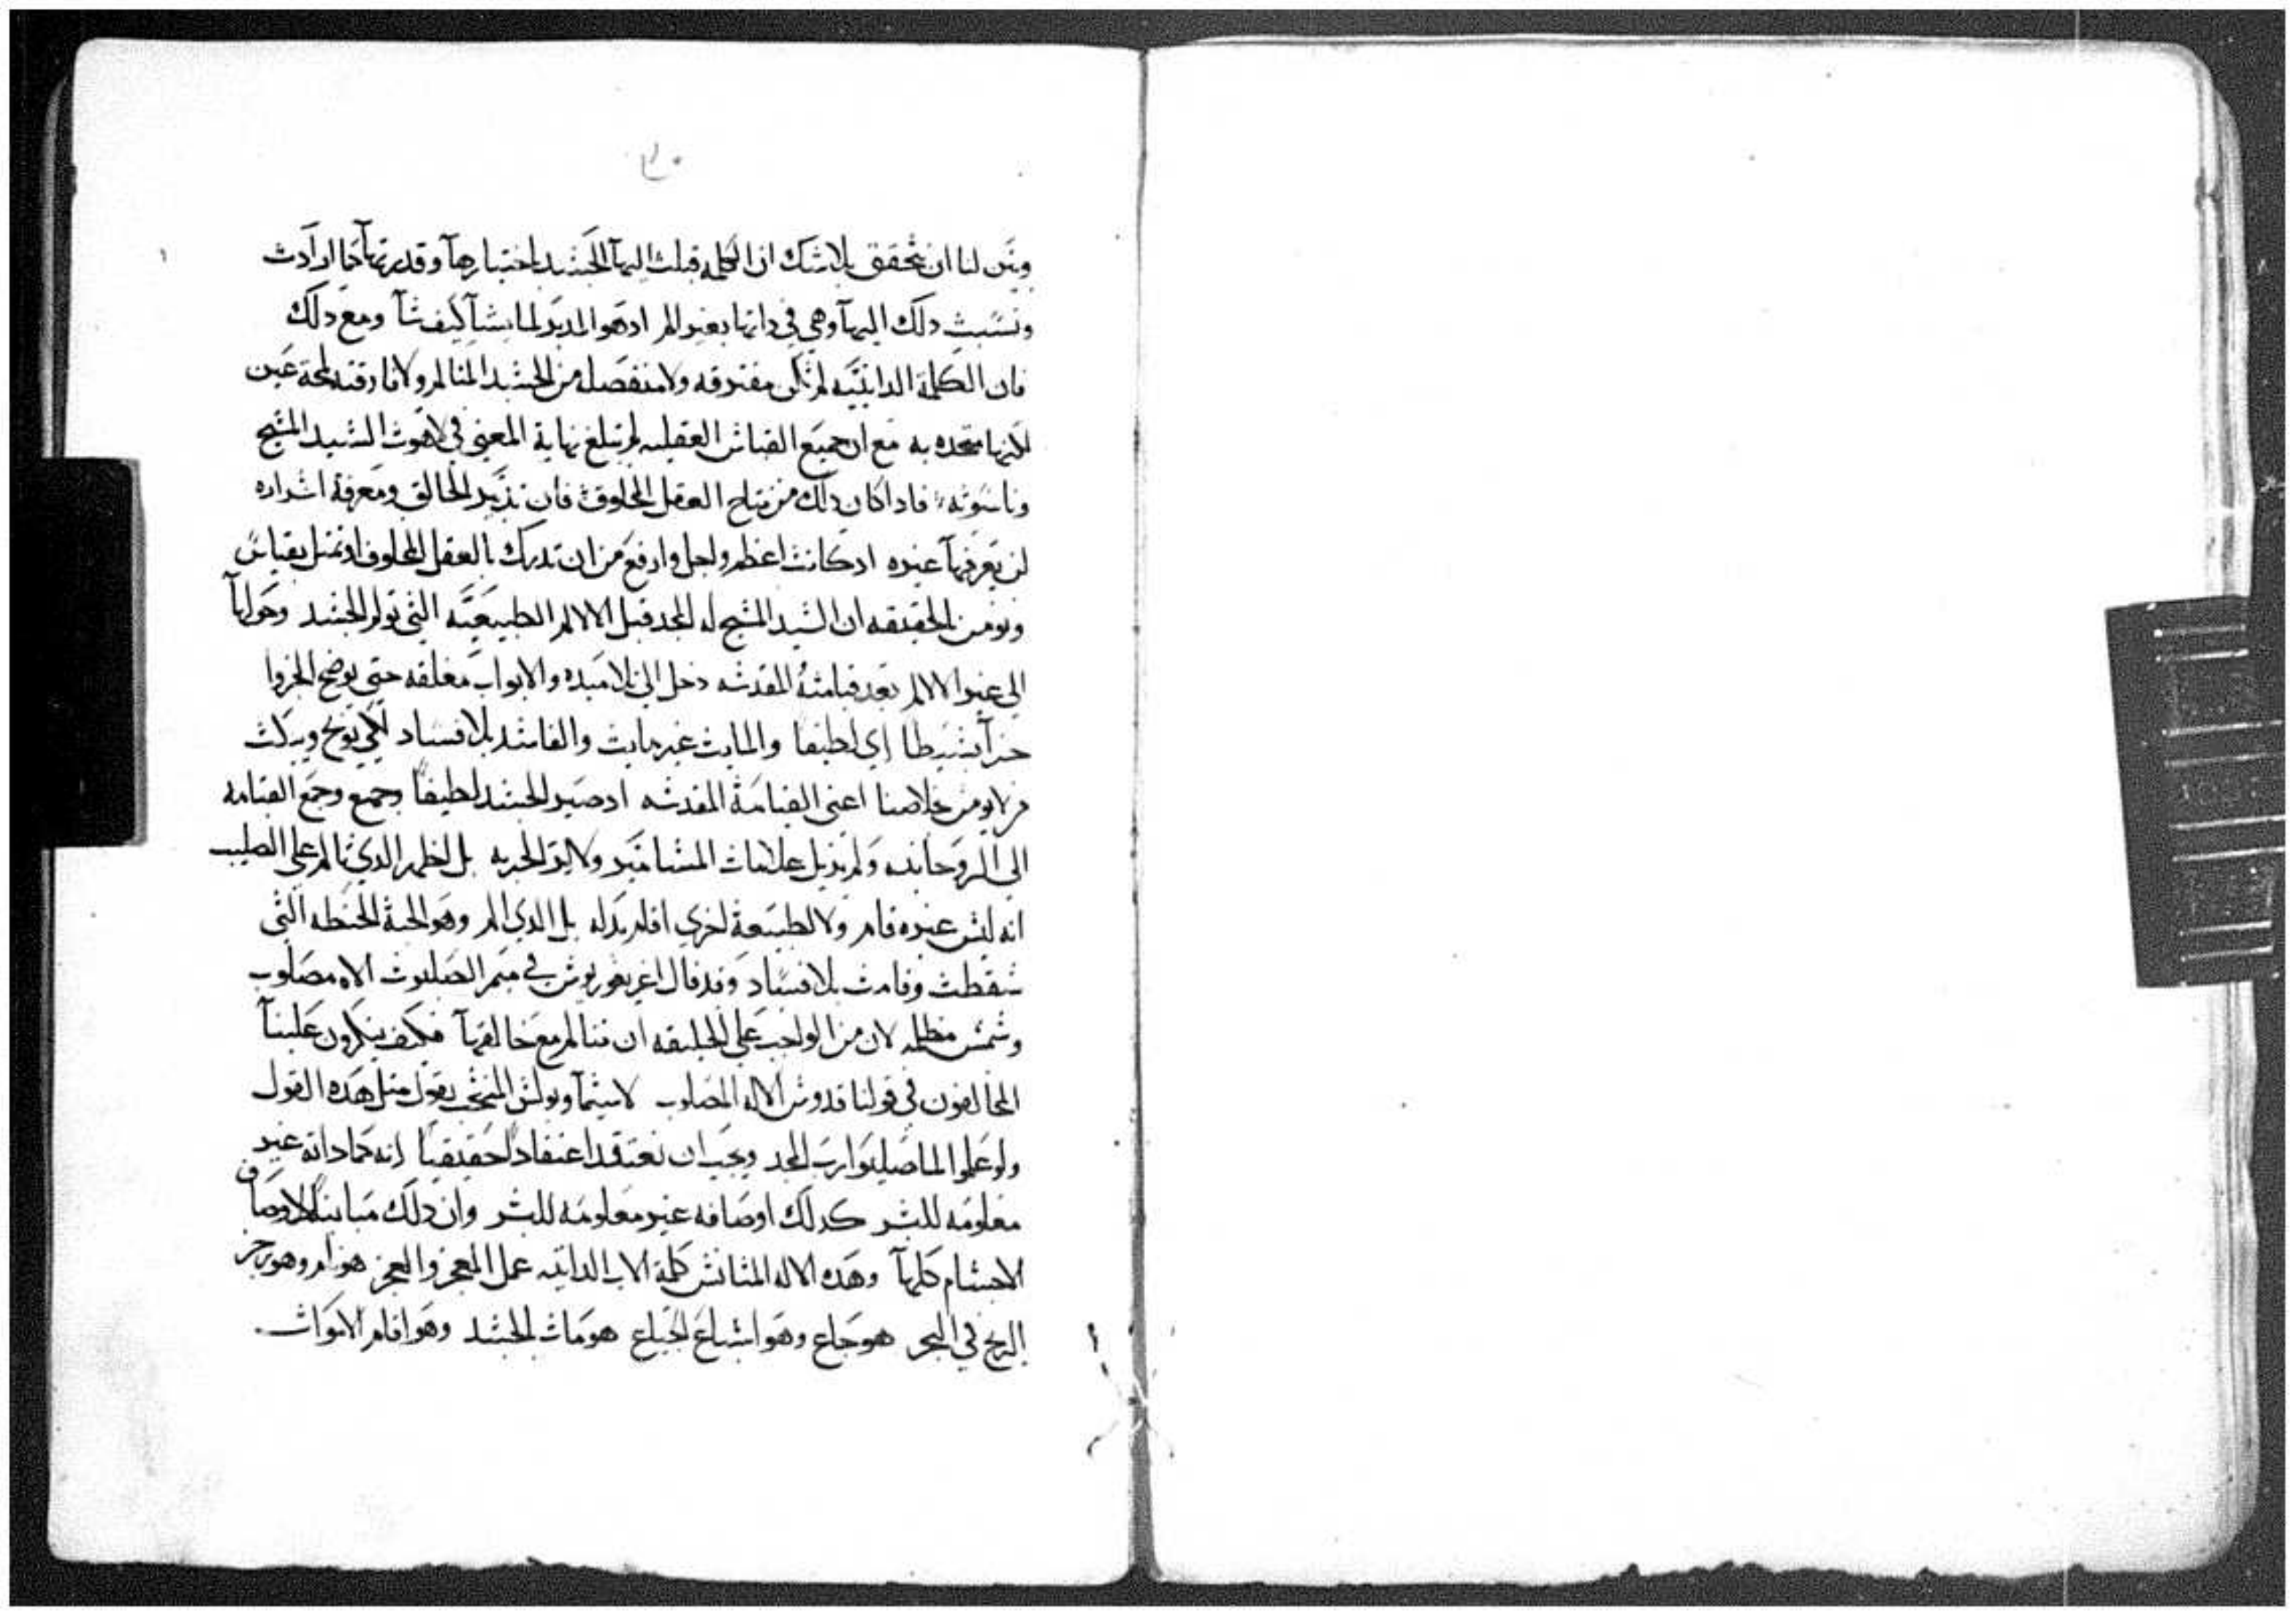 وبين لنا ان نتحقق بلا شك ان الكلمه قبلت اليها الجسد باختيارها وقدرتها كما ارادت
ونسبت دلك اليها وهي في داتها بغير الم ادهو المدبر لما يشا كيف شا ومع دلك
فان الكلمة الداتيه لم تكن مفترقه ولا منفصله من الجسد المتالم ولا فارقته لمحة عين
لانها متحده به مع ان جميع القياس العقليه لم تبلغ نهاية المعني في لاهوت السيد المسيح
وناسوته فادا كان دلك من العقل المخلوق فان تدبير الخالق ومعرفة اسراره
لن يعرفها غيره ادكانت اعظم واجل وارفع من ان تدرك بالعقل المخلوق او تمثل بقياس
ونومن بالحقيقه ان السيد المسيح له المجد قبل الالام الطبيعيه التي تولم الجسد وحولها
الي غير الالم بعد قيامته المقدسه دخل الي تلاميده والابواب مغلقه حتى يوضح
بسيطا اي لطيفا والمايت غير مايت والفاسد بلا فساد لكي يوبخ ويبكت
من لا يومن بخلاصنا اعني القيامة المقدسه ادصير الجسد لطيفا وجميع القيامه
الي الروحانيه ولم يزيل علامات المسامير ولا اثر الحربه بل اظهر الدي تالم علي الصليب
انه ليس غيره قام ولا لطبيعة اخري اقام بدله بل الدي الم وهو الحبة الحنطه التي
سقطت وقامت بلا فساد وقد قال اغريغوريوس في ميمر الصلبوت الاه مصلوب
وشمس مظلمه لان من الواجب علي الخليقه ان تتالم مع خالقها فكيف ينكرون علينا
المخالفون في قولنا قدوس الاله المصلوب لاسيما وبولس المنتخب يقول مثل هده القول
ولو علموا لما صلبوا رب المجد ويجب ان نعتقد اعتقادا حقيقيا انه كما داته غير
معلومه للبشر كدلك اوصافه غير معلومه للبشر وان دلك مباينا للاوصاف
الاجسام كلها وهده الاله المتانس كلمة الاب الداتيه عمل المعجز والعجز هو نام وهو زجر
الريح في البحر هو جاع وهو اشباع الجياع هو مات بالجسد وهو اقام الاموات